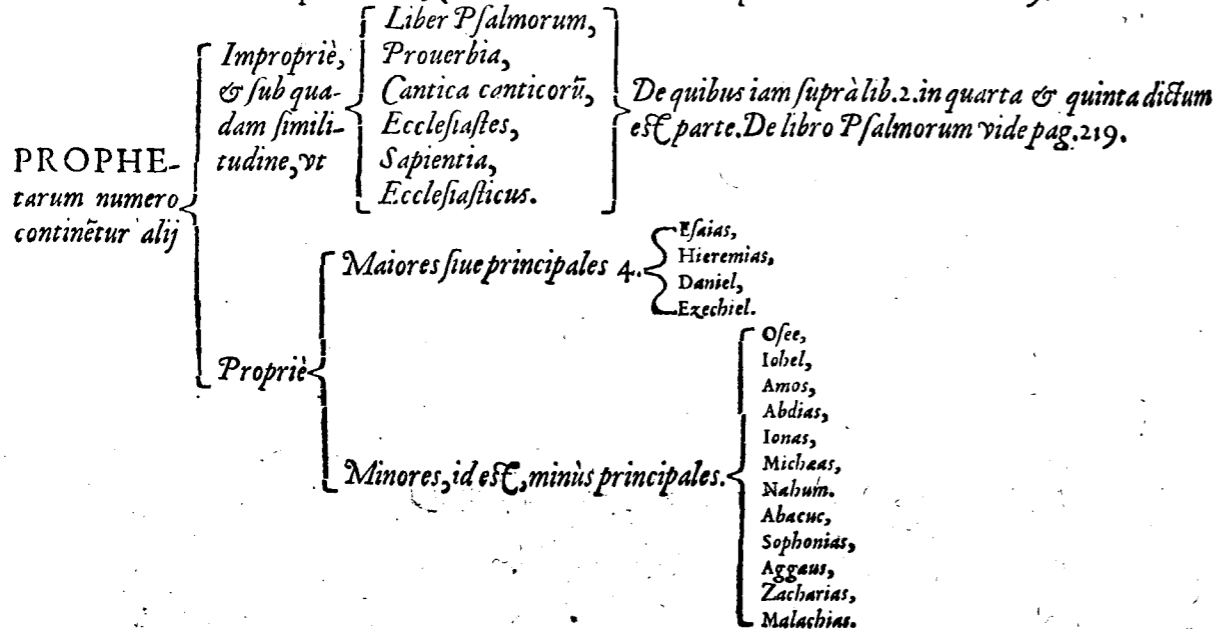 PROPHE-
tarum numero
continẽtur alij
Impropriè,
& sub qua-
dam simili-
tudine, vt
Liber Psalmorum,
Prouerbia,
Cantica canticorũ,
Ecclesiastes,
Sapientia,
Ecclesiasticus.
De quibus iam suprà lib.2. in quarta & quinta dictum
est parte. De libro Psalmorum vide pag.219.
Propriè
Maiores siue principales 4.
Esaias,
Hieremias,
Daniel,
Ezechiel.
Minores, id est, minùs principales.
Osee,
Iohel,
Amos,
Abdias,
Ionas,
Michæas,
Nahum.
Abacuc,
Sophonias,
Aggæus,
Zacharias,
Malachias.